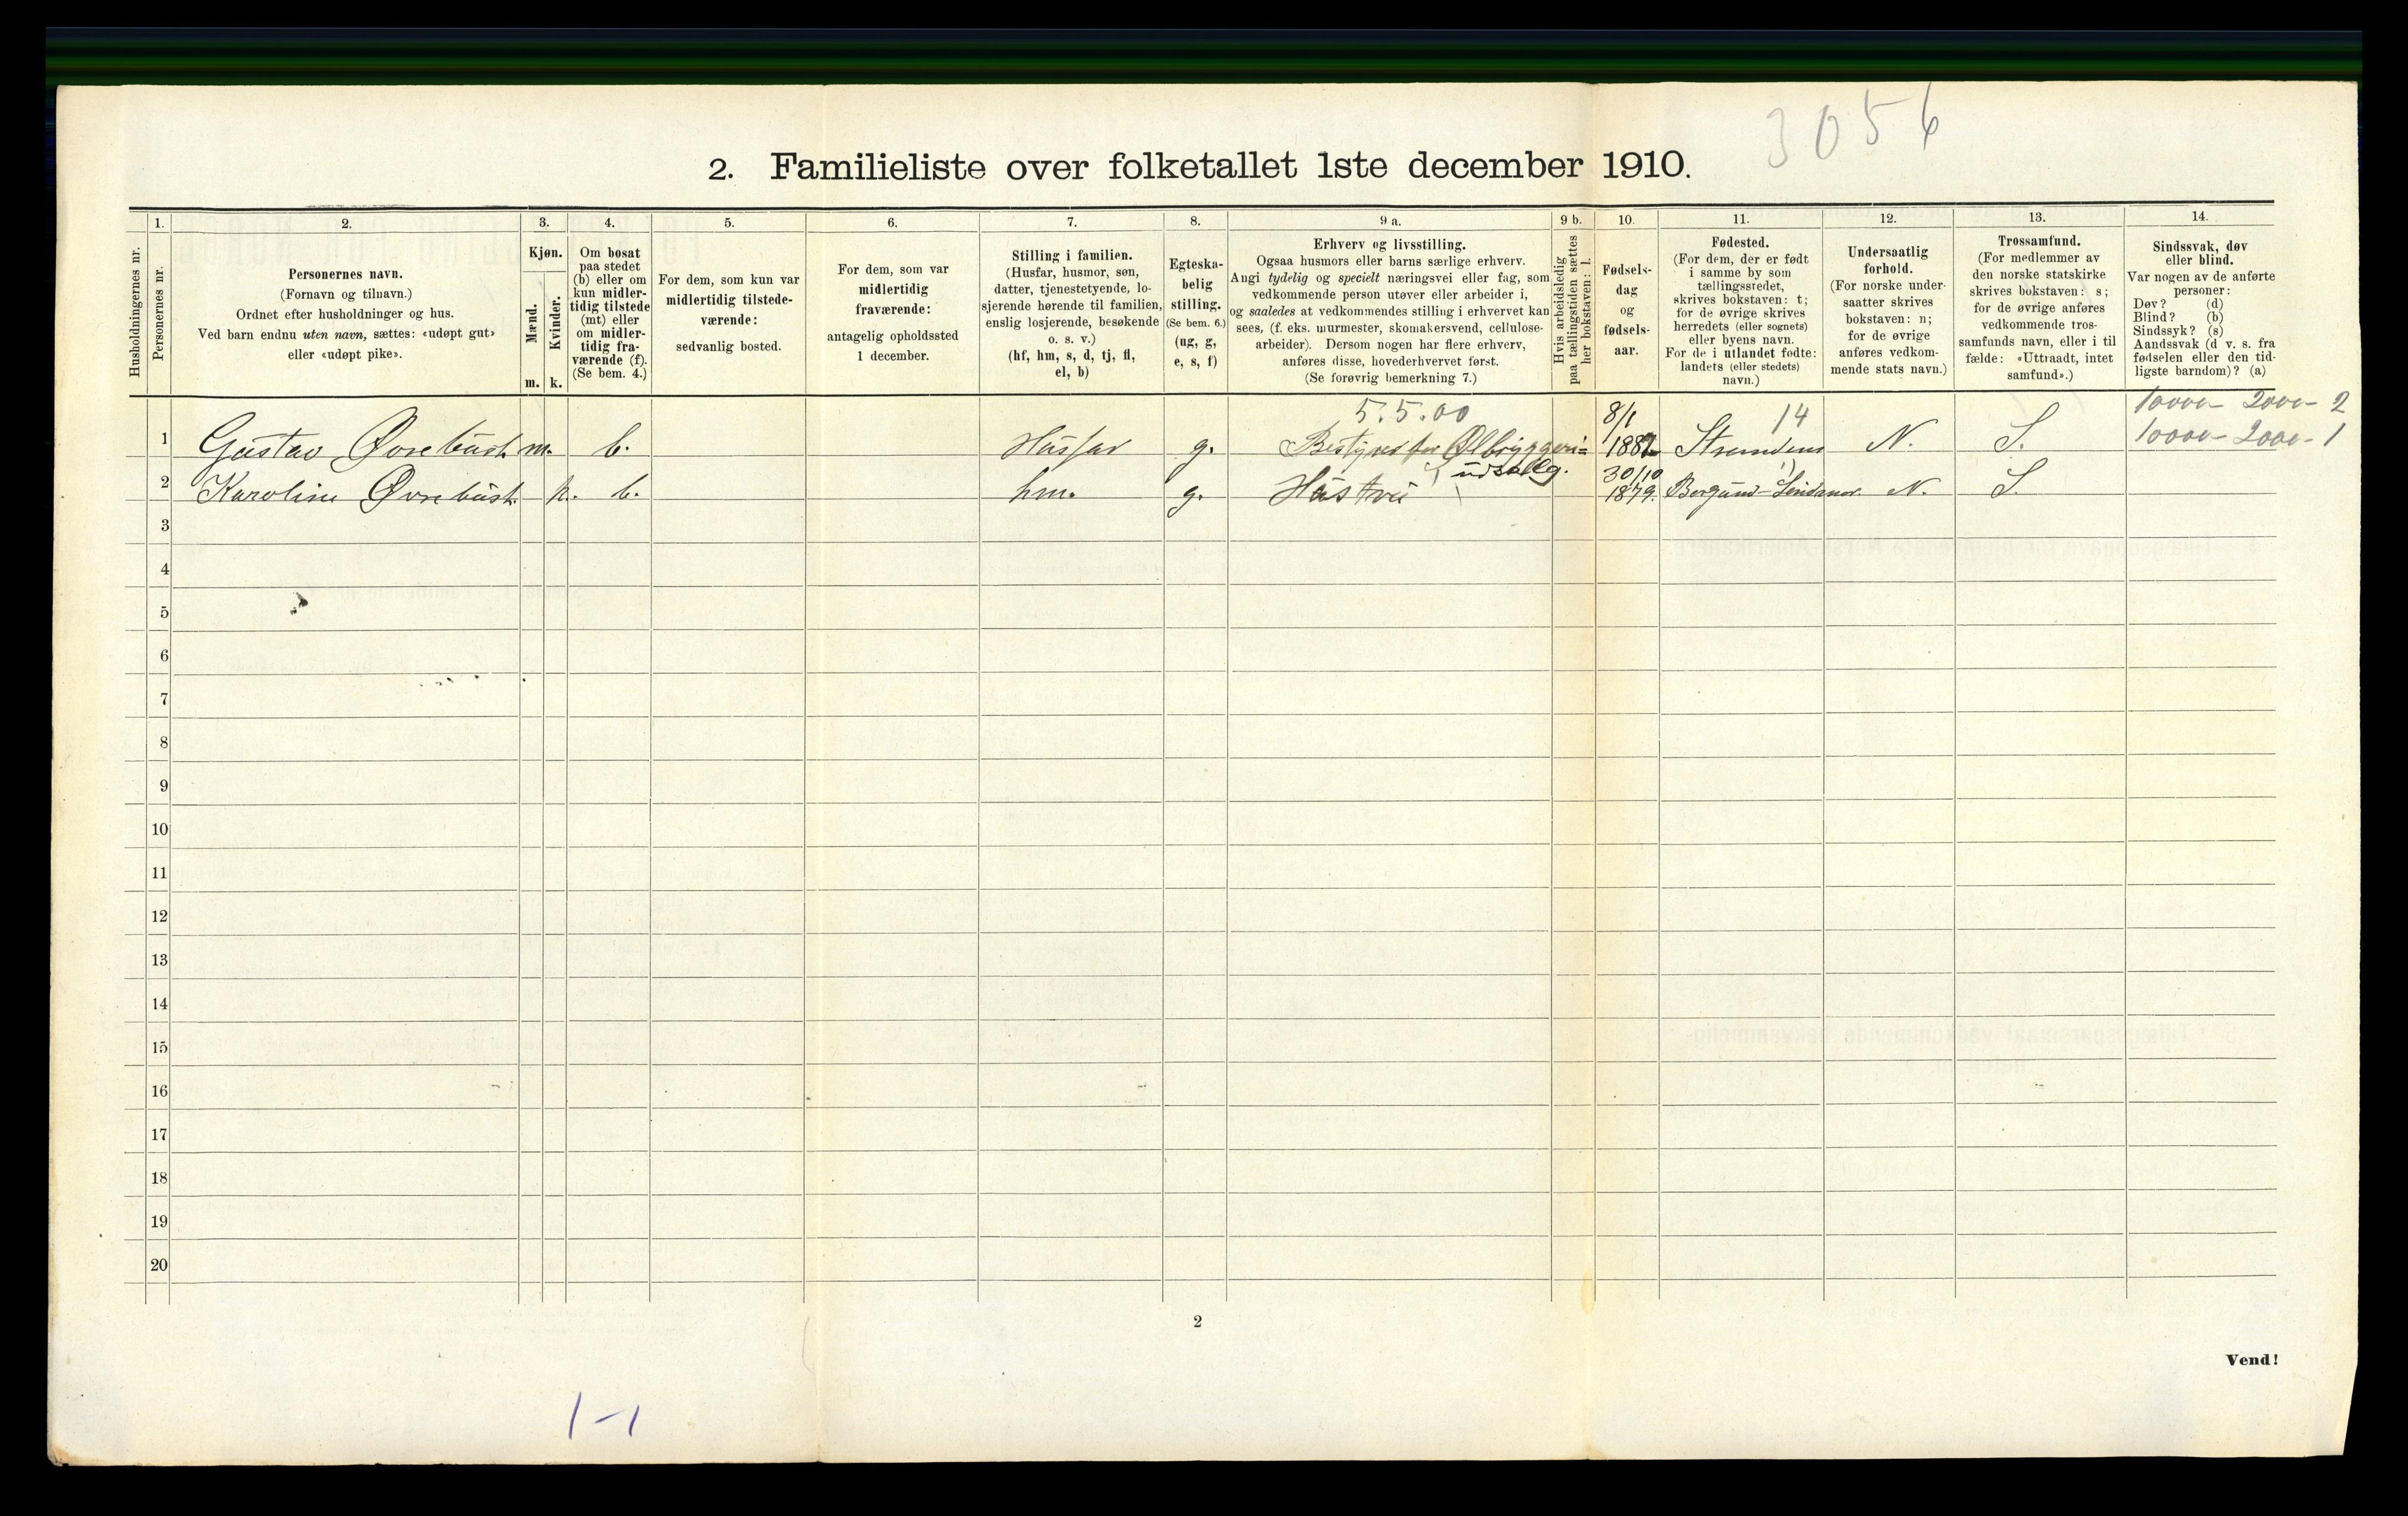 3056
2. Familieliste over folketallet 1ste december 1910.
Husholdningernes nr.
1.
Personernes nr.
2.
Personernes navn.
(Fornavn og tilnavn.)
Ordnet efter husholdninger og hus.
Ved barn endnu uten navn, sættes: «udøpt gut»
eller «udøpt pike».
3.
Kjøn.
Mænd.
Kvinder.
m.
k.
4.
Om bosat
paa stedet
(b) eller om
kun midler-
tidig tilstede
(mt) eller
om midler-
tidig fra-
værende (f).
(Se bem. 4.)
5.
For dem, som kun var
midlertidig tilstede-
værende:
sedvanlig bosted.
6.
For dem, som var
midlertidig
fraværende:
antagelig opholdssted
1 december.
7.
Stilling i familien.
(Husfar, husmor, søn,
datter, tjenestetyende, lo-
sjerende hørende til familien,
enslig losjerende, besøkende
o. s. v.)
(hf, hm, s, d, tj, fl,
el, b)
8.
Egteska-
belig
stilling.
(Se bem. 6.)
(ug, g,
e, s, f)
9 a.
Erhverv og livsstilling.
Ogsaa husmors eller barns særlige erhverv.
Angi tydelig og specielt næringsvei eller fag, som
vedkommende person utøver eller arbeider i,
og saaledes at vedkommendes stilling i erhvervet kan
sees, (f. eks. murmester, skomakersvend, cellulose-
arbeider). Dersom nogen har flere erhverv,
anføres disse, hovederhvervet først.
(Se forøvrig bemerkning 7.)
9 b.
Hvis arbeidsledig
paa tællingstiden sættes
her bokstaven: l.
10.
Fødsels-
dag
og
fødsels-
aar.
11.
Fødested.
(For dem, der er født
i samme by som
tællingsstedet,
skrives bokstaven: t;
for de øvrige skrives
herredets (eller sognets)
eller byens navn.
For de i utlandet fødte:
landets (eller stedets)
navn.)
12.
Undersaatlig
forhold.
(For norske under-
saatter skrives
bokstaven: n;
for de øvrige
anføres vedkom-
mende stats navn.)
13.
Trossamfund.
(For medlemmer av
den norske statskirke
skrives bokstaven: s;
for de øvrige anføres
vedkommende tros-
samfunds navn, eller i til
fælde: «Uttraadt, intet
samfund».)
14.
Sindssvak, døv
eller blind.
Var nogen av de anførte
personer:
Døv? (d)
Blind? (b)
Sindssyk? (s)
Aandssvak (d v. s. fra
fødselen eller den tid-
ligste barndom)? (a)
5.5.00 8/1 14 10000- 2000- 2
1 Gustav Øvrebust m. b. Husfar g. Bestyrer for Ølbryggeri= 1882 N. S. 10000- 2000- 1
udsalg. 30/10
2 Karoline Øvrebust. k. b. hm. g. Hustru 1879. Borgund N. S.
3
4
5
6
7
8
9
10
11
12
13
14
15
16
17
18
19
20
2
Vend!
1-1